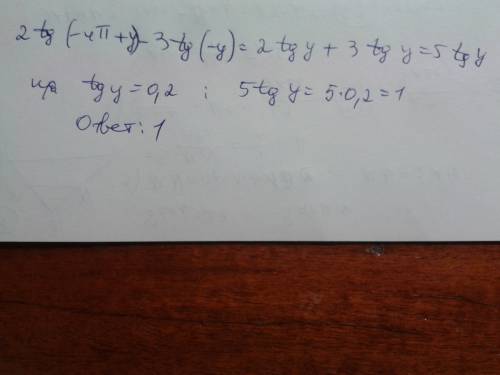 2 tg (-4π + y) - 3 tg (-y) = 2 tg y + 3 tg y = 5 tg y
при tg y = 0,2 ; 5 tg y = 5·0,2 = 1
Ответ: 1